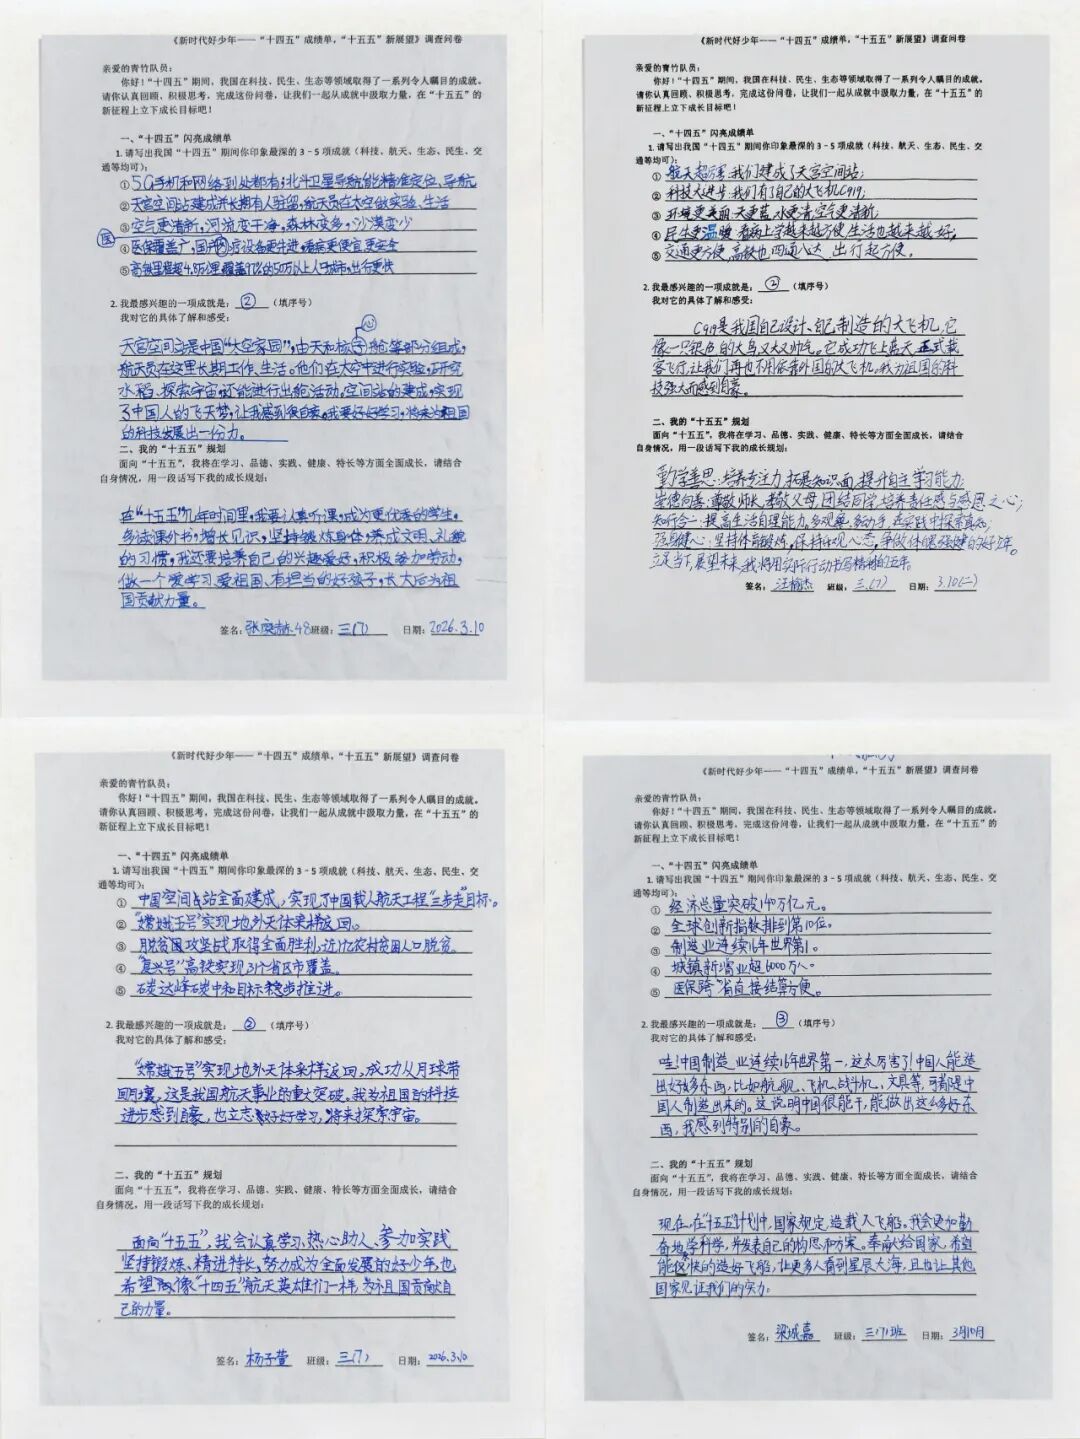 《新时代好少年——“十四五”成绩单，“十五五”新展望》调查问卷
亲爱的青竹队员：
你好！“十四五”期间，我国在科技、民生、生态等领域取得了一系列令人瞩目的成就。
请你认真回顾、积极思考，完成这份问卷，让我们一起从成就中汲取力量，在“十五五”的
新征程上立下成长目标吧！
一、“十四五”闪亮成绩单
1.请写出我国“十四五”期间你印象最深的3-5项成就（科技、航天、生态、民生、交
通等均可）：
①5G手机和网络到处都有；北斗卫星导航能精准定位、导航
②天宫空间站建成并长期有人驻留，航天员在太空做实验、生活
③空气更清新，河流变干净，森林变多，沙漠变少
④医保覆盖广，国产医疗设备更先进，看病更便宜更安全
⑤高铁里程超4.8万公里，覆盖97%的50万以上人口城市，出行更快
2.我最感兴趣的一项成就是：②（填序号）
我对它的具体了解和感受：
天宫空间站是中国“太空家园”，由天和核心舱等部分组成，
航天员在这里长期工作、生活。他们在太空中进行实验，研究
水稻、探索宇宙，还能进行出舱活动。空间站的建成，实现
了中国人的飞天梦，让我感到很自豪。我要好好学习，将来为祖国
的科技发展出一份力。
二、我的“十五五”规划
面向“十五五”，我将在学习、品德、实践、健康、特长等方面全面成长，请结合
自身情况，用一段话写下我的成长规划：
在“十五五”几年时间里，我要认真听课，成为更优秀的学生，
多读课外书，增长见识，坚持锻炼身体，养成文明、礼貌
的习惯，我还要培养自己的兴趣爱好，积极参加劳动，
做一个爱学习、爱祖国、有担当的好孩子，长大后为祖
国贡献力量。
签名：张奕赫.48 班级：三(7) 日期：2026.3.10
《新时代好少年——“十四五”成绩单，“十五五”新展望》调查问卷
亲爱的青竹队员：
你好！“十四五”期间，我国在科技、民生、生态等领域取得了一系列令人瞩目的成就。
请你认真回顾、积极思考，完成这份问卷，让我们一起从成就中汲取力量，在“十五五”的
新征程上立下成长目标吧！
一、“十四五”闪亮成绩单
1.请写出我国“十四五”期间你印象最深的3-5项成就（科技、航天、生态、民生、交
通等均可）：
①航天超厉害：我们建成了天宫空间站；
②科技大进步：我们有了自己的大飞机C919；
③环境更美丽：天更蓝，水更清，空气更清新；
④民生更温暖：看病上学越来越方便，生活也越来越好；
⑤交通更方便，高铁也四通八达，出行超方便。
2.我最感兴趣的一项成就是：②（填序号）
我对它的具体了解和感受：
C919是我国自己设计、自己制造的大飞机，它
像一只银色的大鸟，又大又帅气。它成功飞上蓝天，正式载
客飞行，让我们再也不用依靠外国的大飞机。我为祖国的科
技强大而感到自豪。
二、我的“十五五”规划
面向“十五五”，我将在学习、品德、实践、健康、特长等方面全面成长，请结合
自身情况，用一段话写下我的成长规划：
勤学善思：培养专注力，拓展知识面，提升自主学习能力；
崇德向善：尊敬师长，孝敬父母，团结同学，培养责任感与感恩之心；
知行合一：提高生活自理能力，多观察，多动手，在实践中探索真知；
强身健心：坚持体育锻炼，保持乐观心态，争做体健强健的好少年。
立足当下，展望未来，我将用实际行动书写精彩的五年。
签名：汪榆杰 班级：三(7) 日期：3.10(二)
《新时代好少年——“十四五”成绩单，“十五五”新展望》调查问卷
亲爱的青竹队员：
你好！“十四五”期间，我国在科技、民生、生态等领域取得了一系列令人瞩目的成就。
请你认真回顾、积极思考，完成这份问卷，让我们一起从成就中汲取力量，在“十五五”的
新征程上立下成长目标吧！
一、“十四五”闪亮成绩单
1.请写出我国“十四五”期间你印象最深的3-5项成就（科技、航天、生态、民生、交
通等均可）：
①中国空间站全面建成，实现了中国载人航天工程“三步走”目标。
②“嫦娥五号”实现地外天体采样返回。
③脱贫攻坚战取得全面胜利，近1亿农村贫困人口脱贫。
④“复兴号”高铁实现31个省区市覆盖。
⑤碳达峰碳中和目标稳步推进。
2.我最感兴趣的一项成就是：②（填序号）
我对它的具体了解和感受：
“嫦娥五号”实现地外天体采样返回，成功从月球带
回月壤，这是我国航天事业的重大突破。我为祖国的科技
进步感到自豪，也立志好好学习，将来探索宇宙。
二、我的“十五五”规划
面向“十五五”，我将在学习、品德、实践、健康、特长等方面全面成长，请结合
自身情况，用一段话写下我的成长规划：
面向“十五五”，我会认真学习、热心助人、参加实践
坚持锻炼、精进特长，努力成为全面发展的好少年，也
希望像“十四五”航天英雄们一样，为祖国贡献自
己的力量。
签名：杨子萱 班级：三(7) 日期：2026.3.10
《新时代好少年——“十四五”成绩单，“十五五”新展望》调查问卷
亲爱的青竹队员：
你好！“十四五”期间，我国在科技、民生、生态等领域取得了一系列令人瞩目的成就。
请你认真回顾、积极思考，完成这份问卷，让我们一起从成就中汲取力量，在“十五五”的
新征程上立下成长目标吧！
一、“十四五”闪亮成绩单
1.请写出我国“十四五”期间你印象最深的3-5项成就（科技、航天、生态、民生、交
通等均可）：
①经济总量突破140万亿元。
②全球创新指数排到第10位。
③制造业连续16年世界第1。
④城镇新增业超6000万人。
⑤医保跨省直接结算方便。
2.我最感兴趣的一项成就是：③（填序号）
我对它的具体了解和感受：
哇！中国制造业连续16年世界第一，这太厉害了！中国人能造
出好多东西，比如航舰、飞机、战斗机、文具等，可都是中
国人制造出来的。这说明中国很能干，能做出这么多好东
西，我感到特别的自豪。
二、我的“十五五”规划
面向“十五五”，我将在学习、品德、实践、健康、特长等方面全面成长，请结合
自身情况，用一段话写下我的成长规划：
现在，在“十五五”计划中，国家规定，造载人飞船。我会更加勤
奋地学科学，并发表自己的构思和方案。奉献给国家，希望
能很快的造好飞船，让更多人看到星辰大海，且也让其他
国家见证我们的实力。
签名：梁城嘉 班级：三(7)班 日期：3月10日